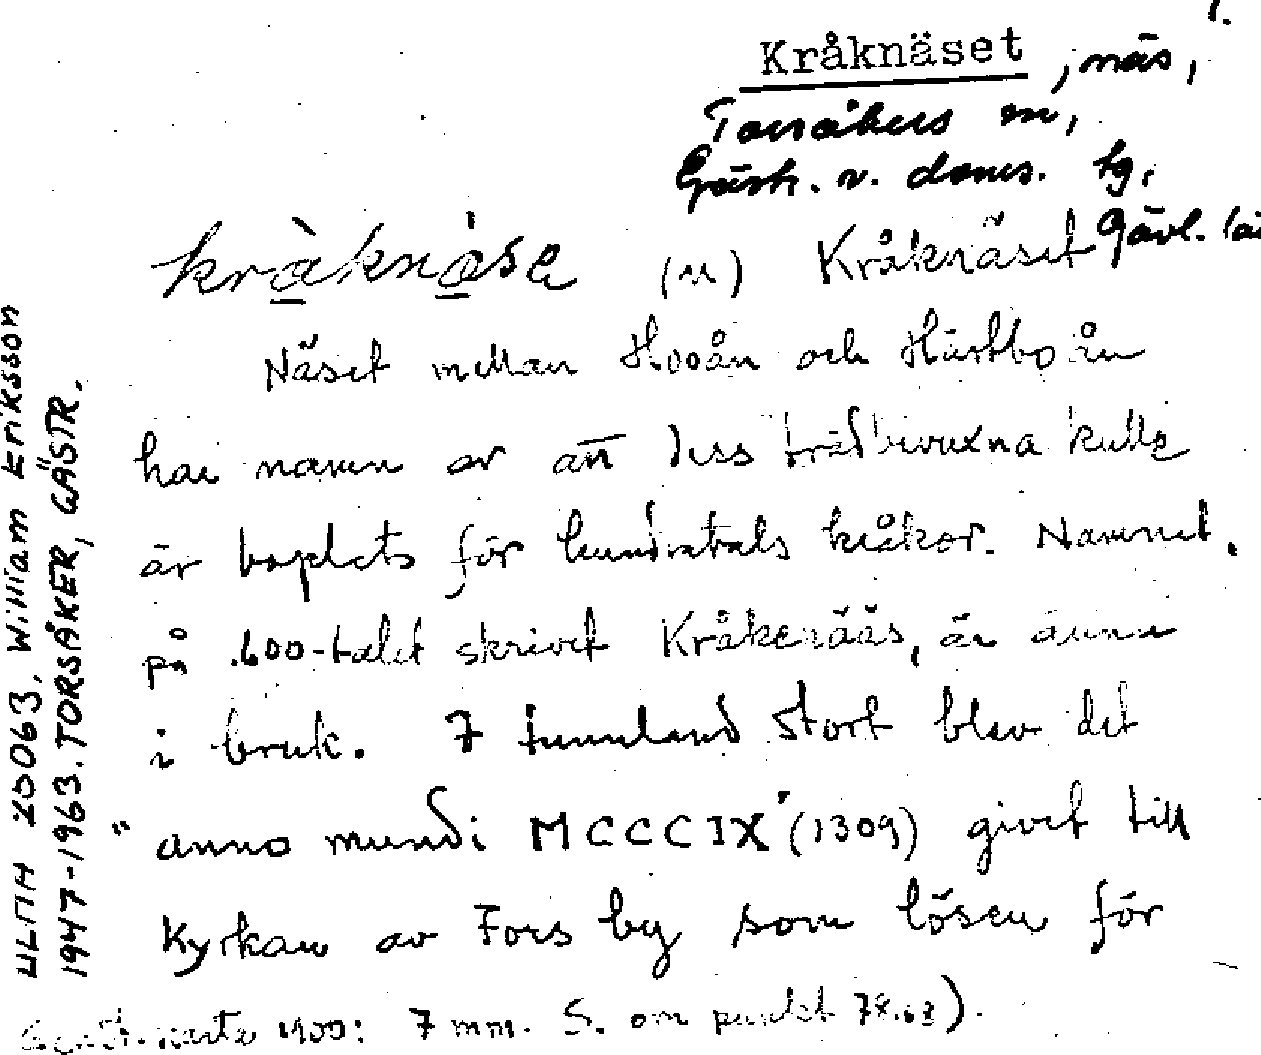 1.
Kråknäset, näs,
Torsåkers sn,
Gästr. v. doms. tg,
Gävl. lä
kråknäse (n) Kråknäset
Näset mellan Hooån och Hästboån
har namn av att dess trädbevuxna kulle
är boplats för hundratals kråkor. Namnet,
på 1600-talet skrivet Kråkenääs, är ännu
i bruk. 7 tunnland stort blev det
"anno mundi MCCCIX" (1309) givet till
Kyrkan av Fors by som lösen för
karta 1900: 7 mm. S. om punkt 78.63).
ULMA 20063. William Eriksson
1947-1963. TORSÅKER, GÄSTR.